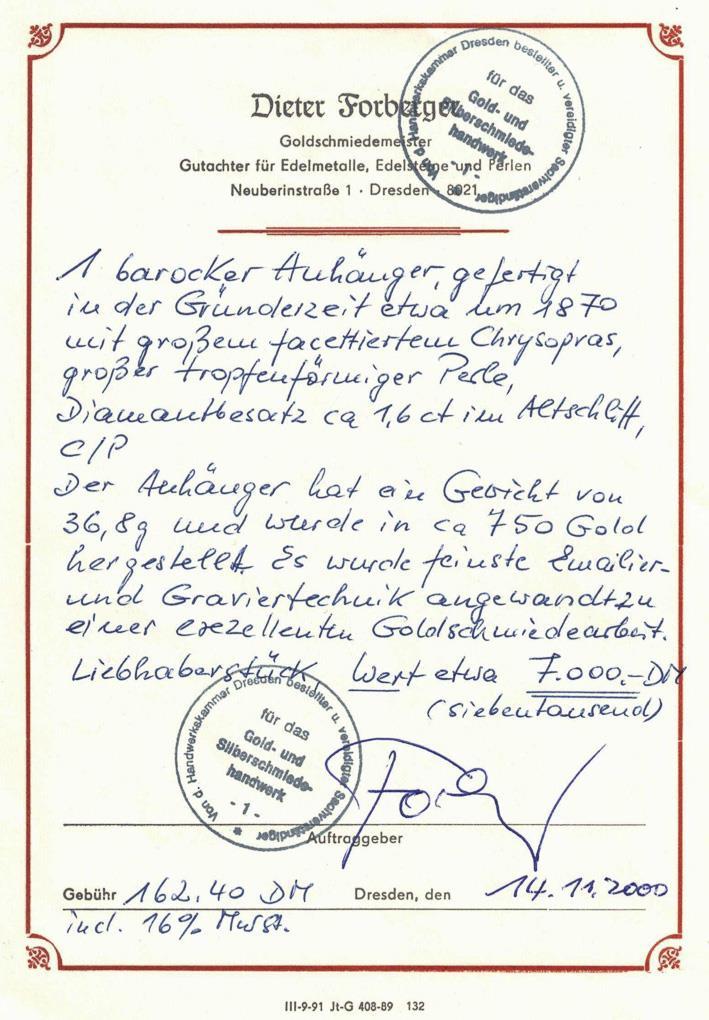 Dieter Forberger
Goldschmiedemeister
Gutachter für Edelmetalle, Edelsteine und Perlen
Neuberinstraße 1 · Dresden · 8021
Von d. Handwerkskammer Dresden bestellter u. vereidigter Sachverständiger
für das
Gold- und
Silberschmiede-
handwerk
- 1 -
1 barocker Anhänger, gefertigt
in der Gründerzeit etwa um 1870
mit großem facettiertem Chrysopras,
großer tropfenförmiger Perle,
Diamantbesatz ca 1,6 ct im Altschliff,
C/P
Der Anhänger hat ein Gewicht von
36,8g und wurde in ca 750 Gold
hergestellt. Es wurde feinste Emailier-
und Graviertechnik angewandt zu
einer exezellenten Goldschmiedearbeit.
Liebhaberstück, Wert etwa 7.000.- DM
(siebentausend)
Von d. Handwerkskammer Dresden bestellter u. vereidigter Sachverständiger *
für das
Gold- und
Silberschmiede-
handwerk
- 1 -
Auftraggeber
Gebühr 162.40 DM Dresden, den 14.11.2000
incl. 16% Mwst.
III-9-91 Jt-G 408-89 132